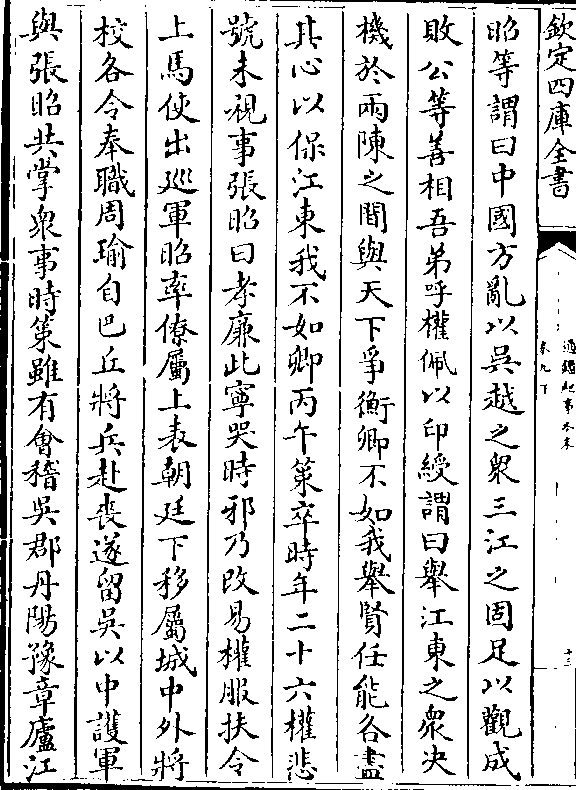 欽定四庫全書
通鑑紀事本末
卷九下
十三
昭等謂曰中國方亂以吳越之衆三江之固足以觀成
敗公等善相吾弟呼權佩以印綬謂曰舉江東之衆决
機於兩陳之間與天下爭衡卿不如我舉賢任能各盡
其心以保江東我不如卿丙午策卒時年二十六權悲
號未視事張昭曰孝廉此寧哭時邪乃改易權服扶令
上馬使出廵軍昭率僚屬上表朝廷下移屬城中外將
校各令奉職周瑜自巴丘將兵赴喪遂留吳以中護軍
與張昭共掌衆事時策雖有會稽吳郡丹陽豫章廬江